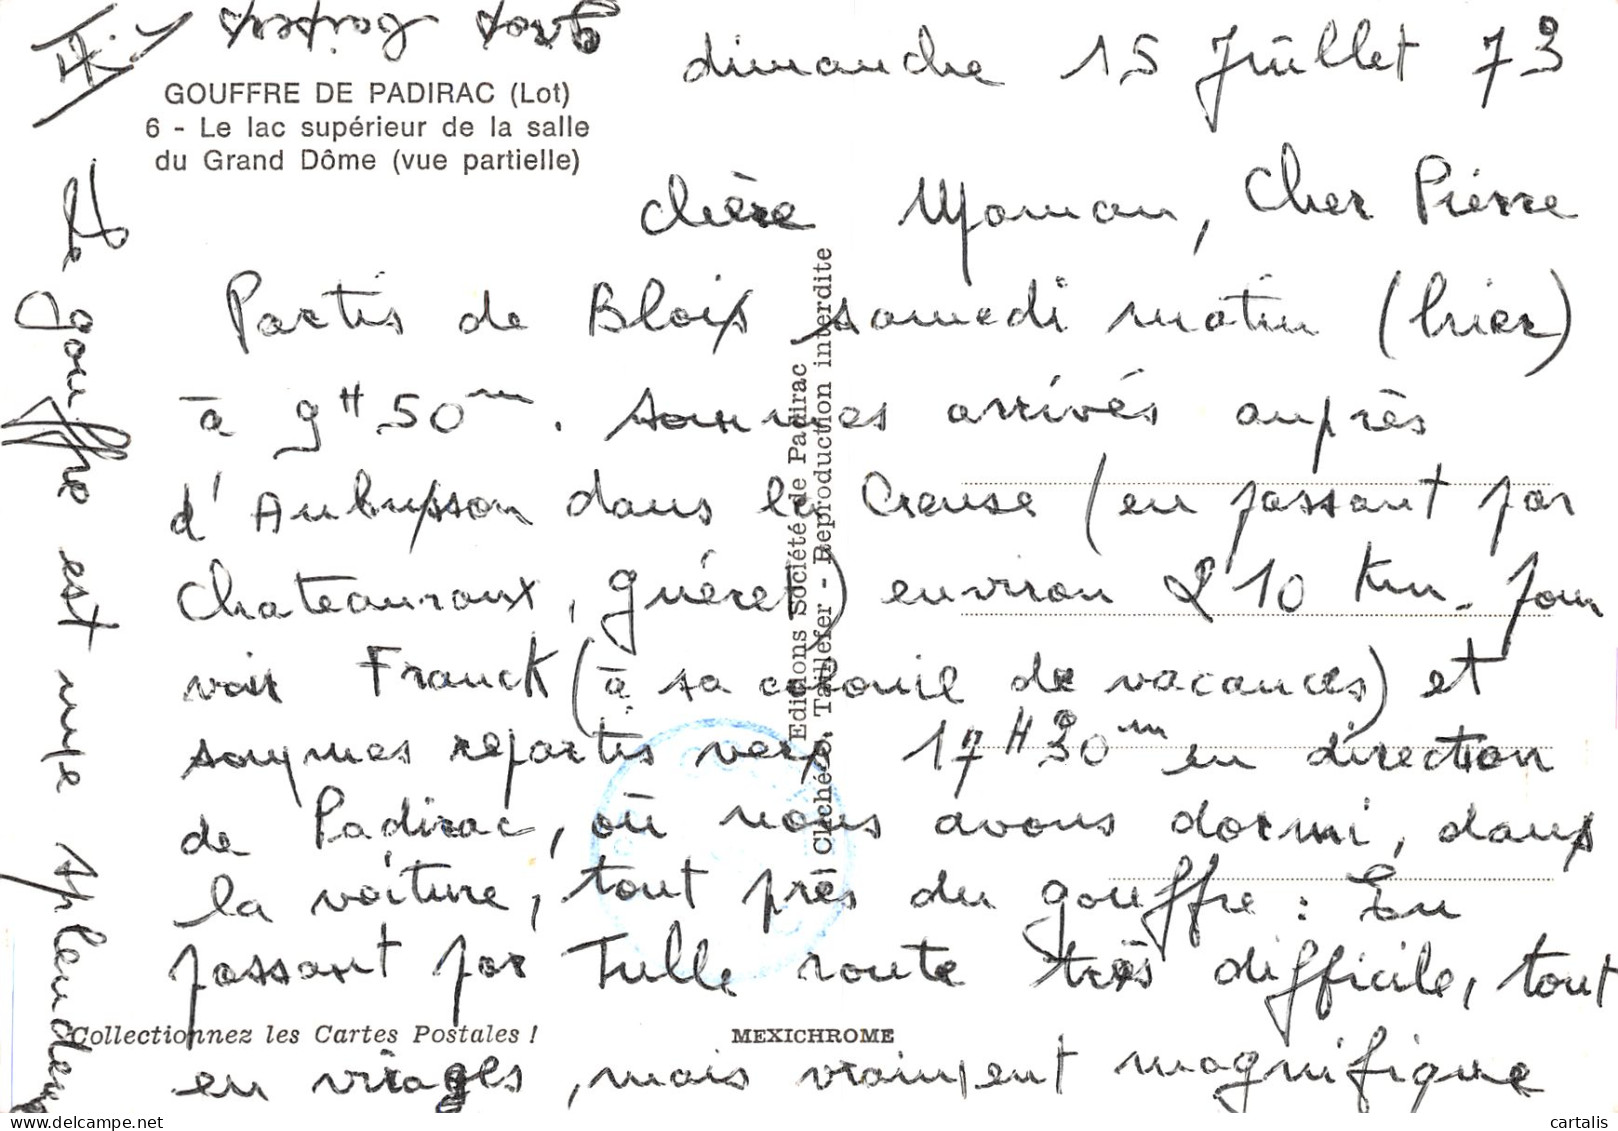 Gros Baisers
dimanche 15 Juillet 73
GOUFFRE DE PADIRAC (Lot)
6 - Le lac supérieur de la salle
du Grand Dôme (vue partielle)
chère Maman, Cher Pierre
Partis de Blois samedi matin (hier)
à 9H50m. sommes arrivés auprès
d'Aubusson dans la Creuse (en passant par
Chateauroux, Guéret) environ 210 Km. pour
voir Franck (à sa colonie de vacances) et
sommes repartis vers 17H30m en direction
de Padirac, où nous avons dormi, dans
la voiture, tout près du gouffre : En
passant par Tulle route très difficile, tout
en virages, mais vraiment magnifique
Le gouffre est une splendeur
Editions Société de Padirac
Clichés O. Taillefer - Reproduction interdite
Collectionnez les Cartes Postales !
MEXICHROME
delcampe.com
cartalis